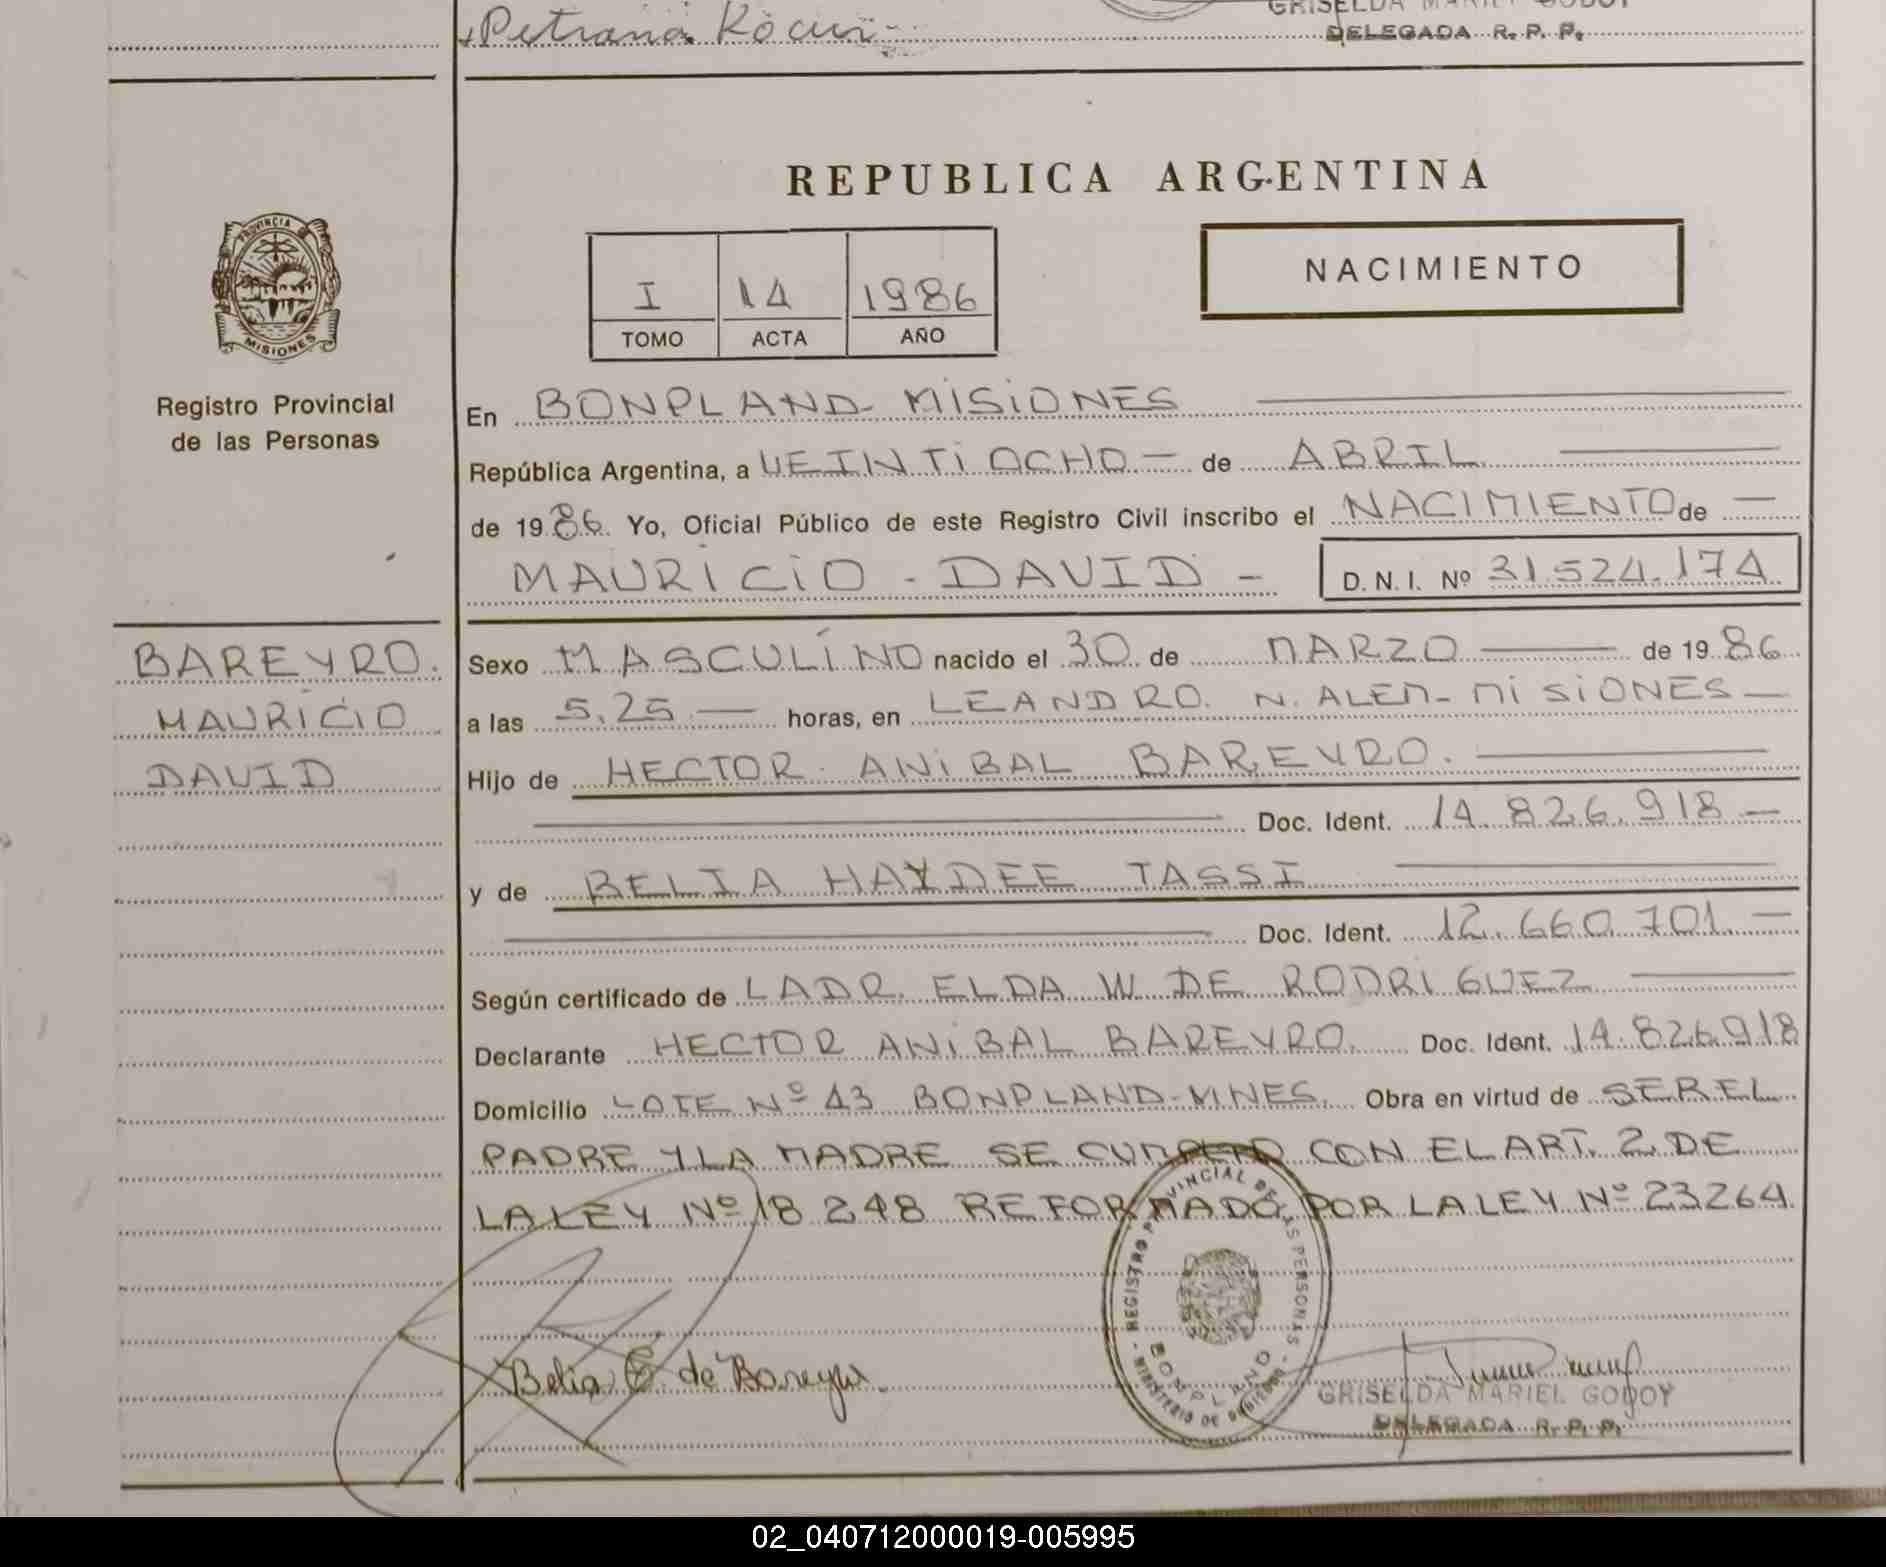 Petrana Kocur
GRISELDA MARIEL GODOY
DELEGADA R. P. P.
REPUBLICA ARGENTINA
PROVINCIA DE
MISIONES
Registro Provincial
de las Personas
I 14 1986
TOMO ACTA AÑO
NACIMIENTO
En BONPLAND- MISIONES
República Argentina, a VEINTIOCHO - de ABRIL
de 1986. Yo, Oficial Público de este Registro Civil inscribo el NACIMIENTO de -
MAURICIO - DAVID - D. N. I. Nº 31.524.174
BAREYRO.
MAURICIO
DAVID
Sexo MASCULINO nacido el 30 de MARZO de 1986
a las 5,25 - horas, en LEANDRO. N. ALEM- MISIONES -
Hijo de HECTOR ANIBAL BAREYRO.
Doc. Ident. 14.826.918 -
y de BELIA HAYDEE TASSI
Doc. Ident. 12.660.701. -
Según certificado de LADR. ELDA W. DE RODRIGUEZ
Declarante HECTOR ANIBAL BAREYRO. Doc. Ident. 14.826.918
Domicilio LOTE Nº 43 BONPLAND-MNES. Obra en virtud de SER EL
PADRE Y LA MADRE SE CUMPLIO CON EL ART. 2 DE
LA LEY Nº 18 248 REFORMADO POR LA LEY Nº 23264.
- REGISTRO PROVINCIAL DE LAS PERSONAS -
BONPLAND
MINISTERIO DE GOBIERNO
Belia de Bareyro.
GRISELDA MARIEL GODOY
DELEGADA R. P. P.
02_040712000019-005995